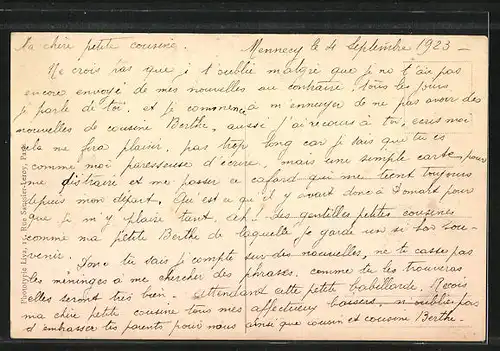 Ma chère petite cousine.
Mennecy le 4 Septembre 1923 -
Ne crois pas que je t'oublie malgré que je ne t'aie pas
encore envoyé de mes nouvelles au contraire, tous les jours
je parle de toi. et je commence à m'ennuyer de ne pas avoir des
nouvelles de cousine Berthe, aussi j'ai recours à toi, ecris moi
cela me fera plaisir, pas trop long car je sais que tu es
comme moi paresseuse d'écrire. mais une simple carte pour
me distraire et me passer ce cafard qui me tient toujours
depuis mon départ. Qu'est ce qu'il y avait donc à Domart pour
que je m'y plaise tant, ah. Les gentilles petites cousines
comme ma petite Berthe de laquelle je garde un si bon sou-
venir. Donc tu sais je compte sur des nouvelles, ne te casse pas
les méninges à me chercher des phrases, comme tu les trouveras
elles seront très bien. Attendant cette petite babillarde. Reçois
ma chère petite cousine tous mes affectueux baisers, n'oublie pas
d'embrasser tes parents pour nous ainsi que cousin et cousine Berthe.
Phototypie Liva, Rue Sauguin-Leroy, Paris